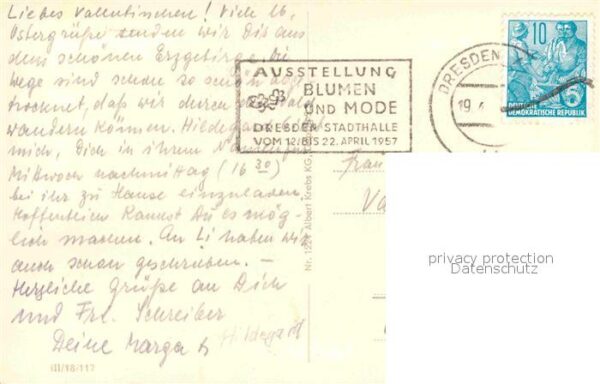 Liebes Valentinchen! Viele lb.
Ostergrüße senden wir Dir aus
dem schönen Erzgebirge. Die
Wege sind schon so schön abge-
trocknet, daß wir durch den Wald
wandern können. Hildegard
mich, Dich in ihrem Namen für
Mittwoch nachmittag (16 30)
bei ihr zu Hause einzuladen.
Hoffentlich kannst Du es mög-
lich machen. An Li haben wir
auch schon geschrieben. -
Herzliche Grüße an Dich
und Frl. Schreiber
Deine Marga
Hildegard
III/18/117
Nr. 1224 Albert Krebs KG,
AUSSTELLUNG
BLUMEN
UND MODE
DRESDEN STADTHALLE
VOM 12. BIS 22. APRIL 1957
DRESDEN
19.4
10
DEUTSCHE
DEMOKRATISCHE REPUBLIK
5
Frau
Va
privacy protection
Datenschutz